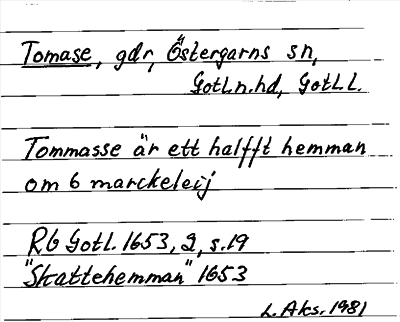 Tomase, gdr, Östergarns sn,
Gotl.n.hd, Gotl.l.
Tommasse är ett halfft hemman
om 6 marckeleij
RG Gotl. 1653, 2, s.19
"Skattehemman" 1653
L. Aks. 1981